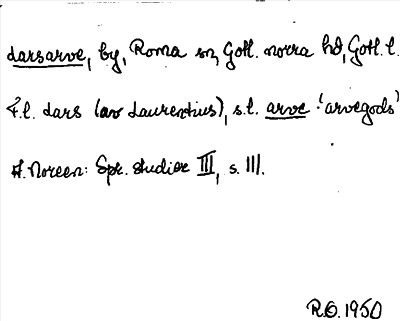 darsarve, by, Roma sn, Gotl. norra hd, Gotl. l.
F.l. dars (av Laurentius), s.l. arve 'arvegods'
A. Noreen: Spr. studier III, s. 111.
R.O. 1950